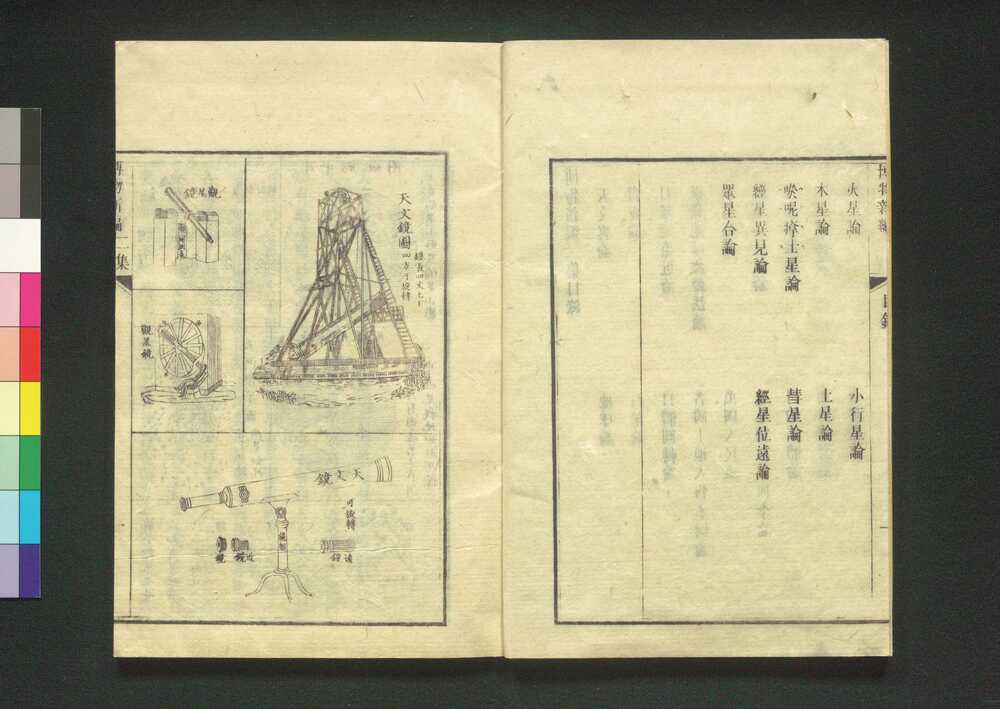 火星論
小行星論
木星論
土星論
㗒呢摩士星論
彗星論
經星異見論
經星位遠論
眾星合論
目錄
天文鏡圖
鏡長四丈七尺
四方可旋轉
觀星鏡
觀星鏡
天文鏡
可旋轉
鏡架
近鏡
遠鏡
二集